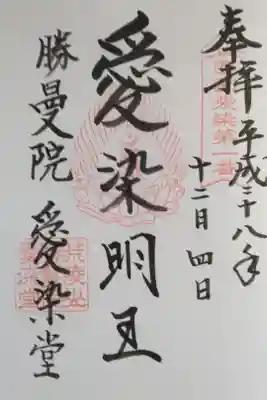 奉拝
平成二十八年
十二月四日
愛染明王
勝曼院
愛染堂